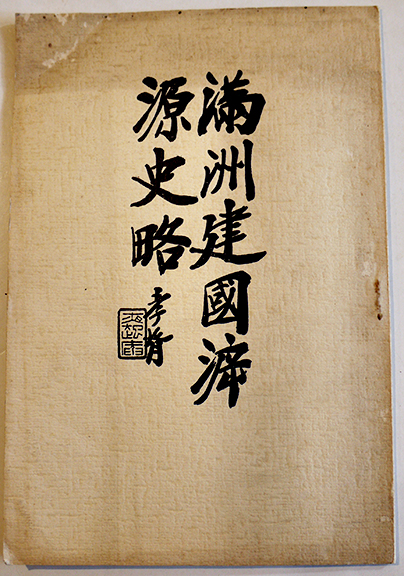 滿洲建國泝
源史略
孝胥